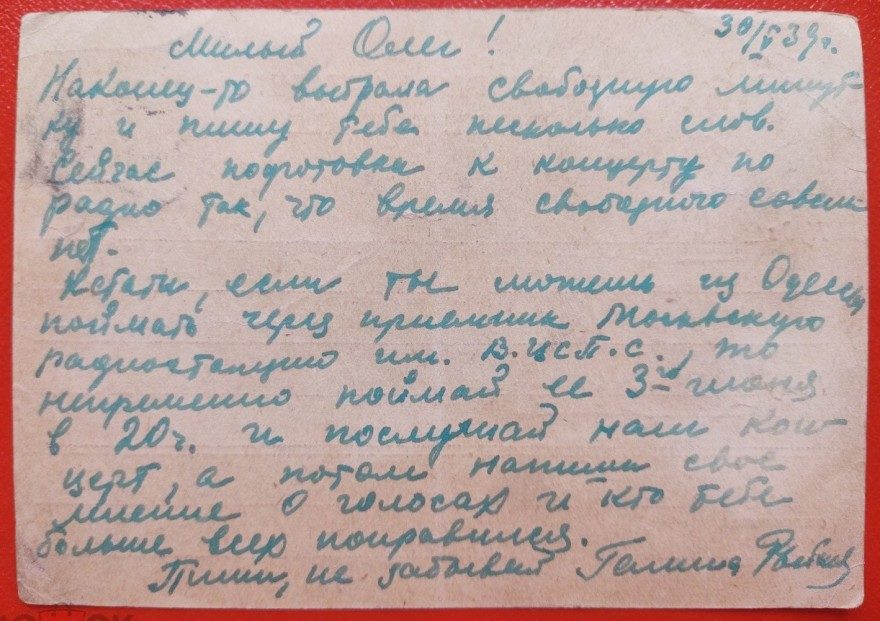 30/V 39г.
Милый Олег!
Наконец-то выбрала свободную минут-
ку и пишу тебе несколько слов.
Сейчас подготовка к концерту по
радио так, что время свободного совсем
нет.
Кстати, если ты можешь из Одессы
поймать через приемник Московскую
радиостанцию им. В.Ц.С.П.С., то
непременно поймай ее 3-го июня
в 20ч. и послушай наш кон-
церт, а потом напиши свое
мнение о голосах и кто тебе
больше всех понравился.
Пиши, не забывай Галина